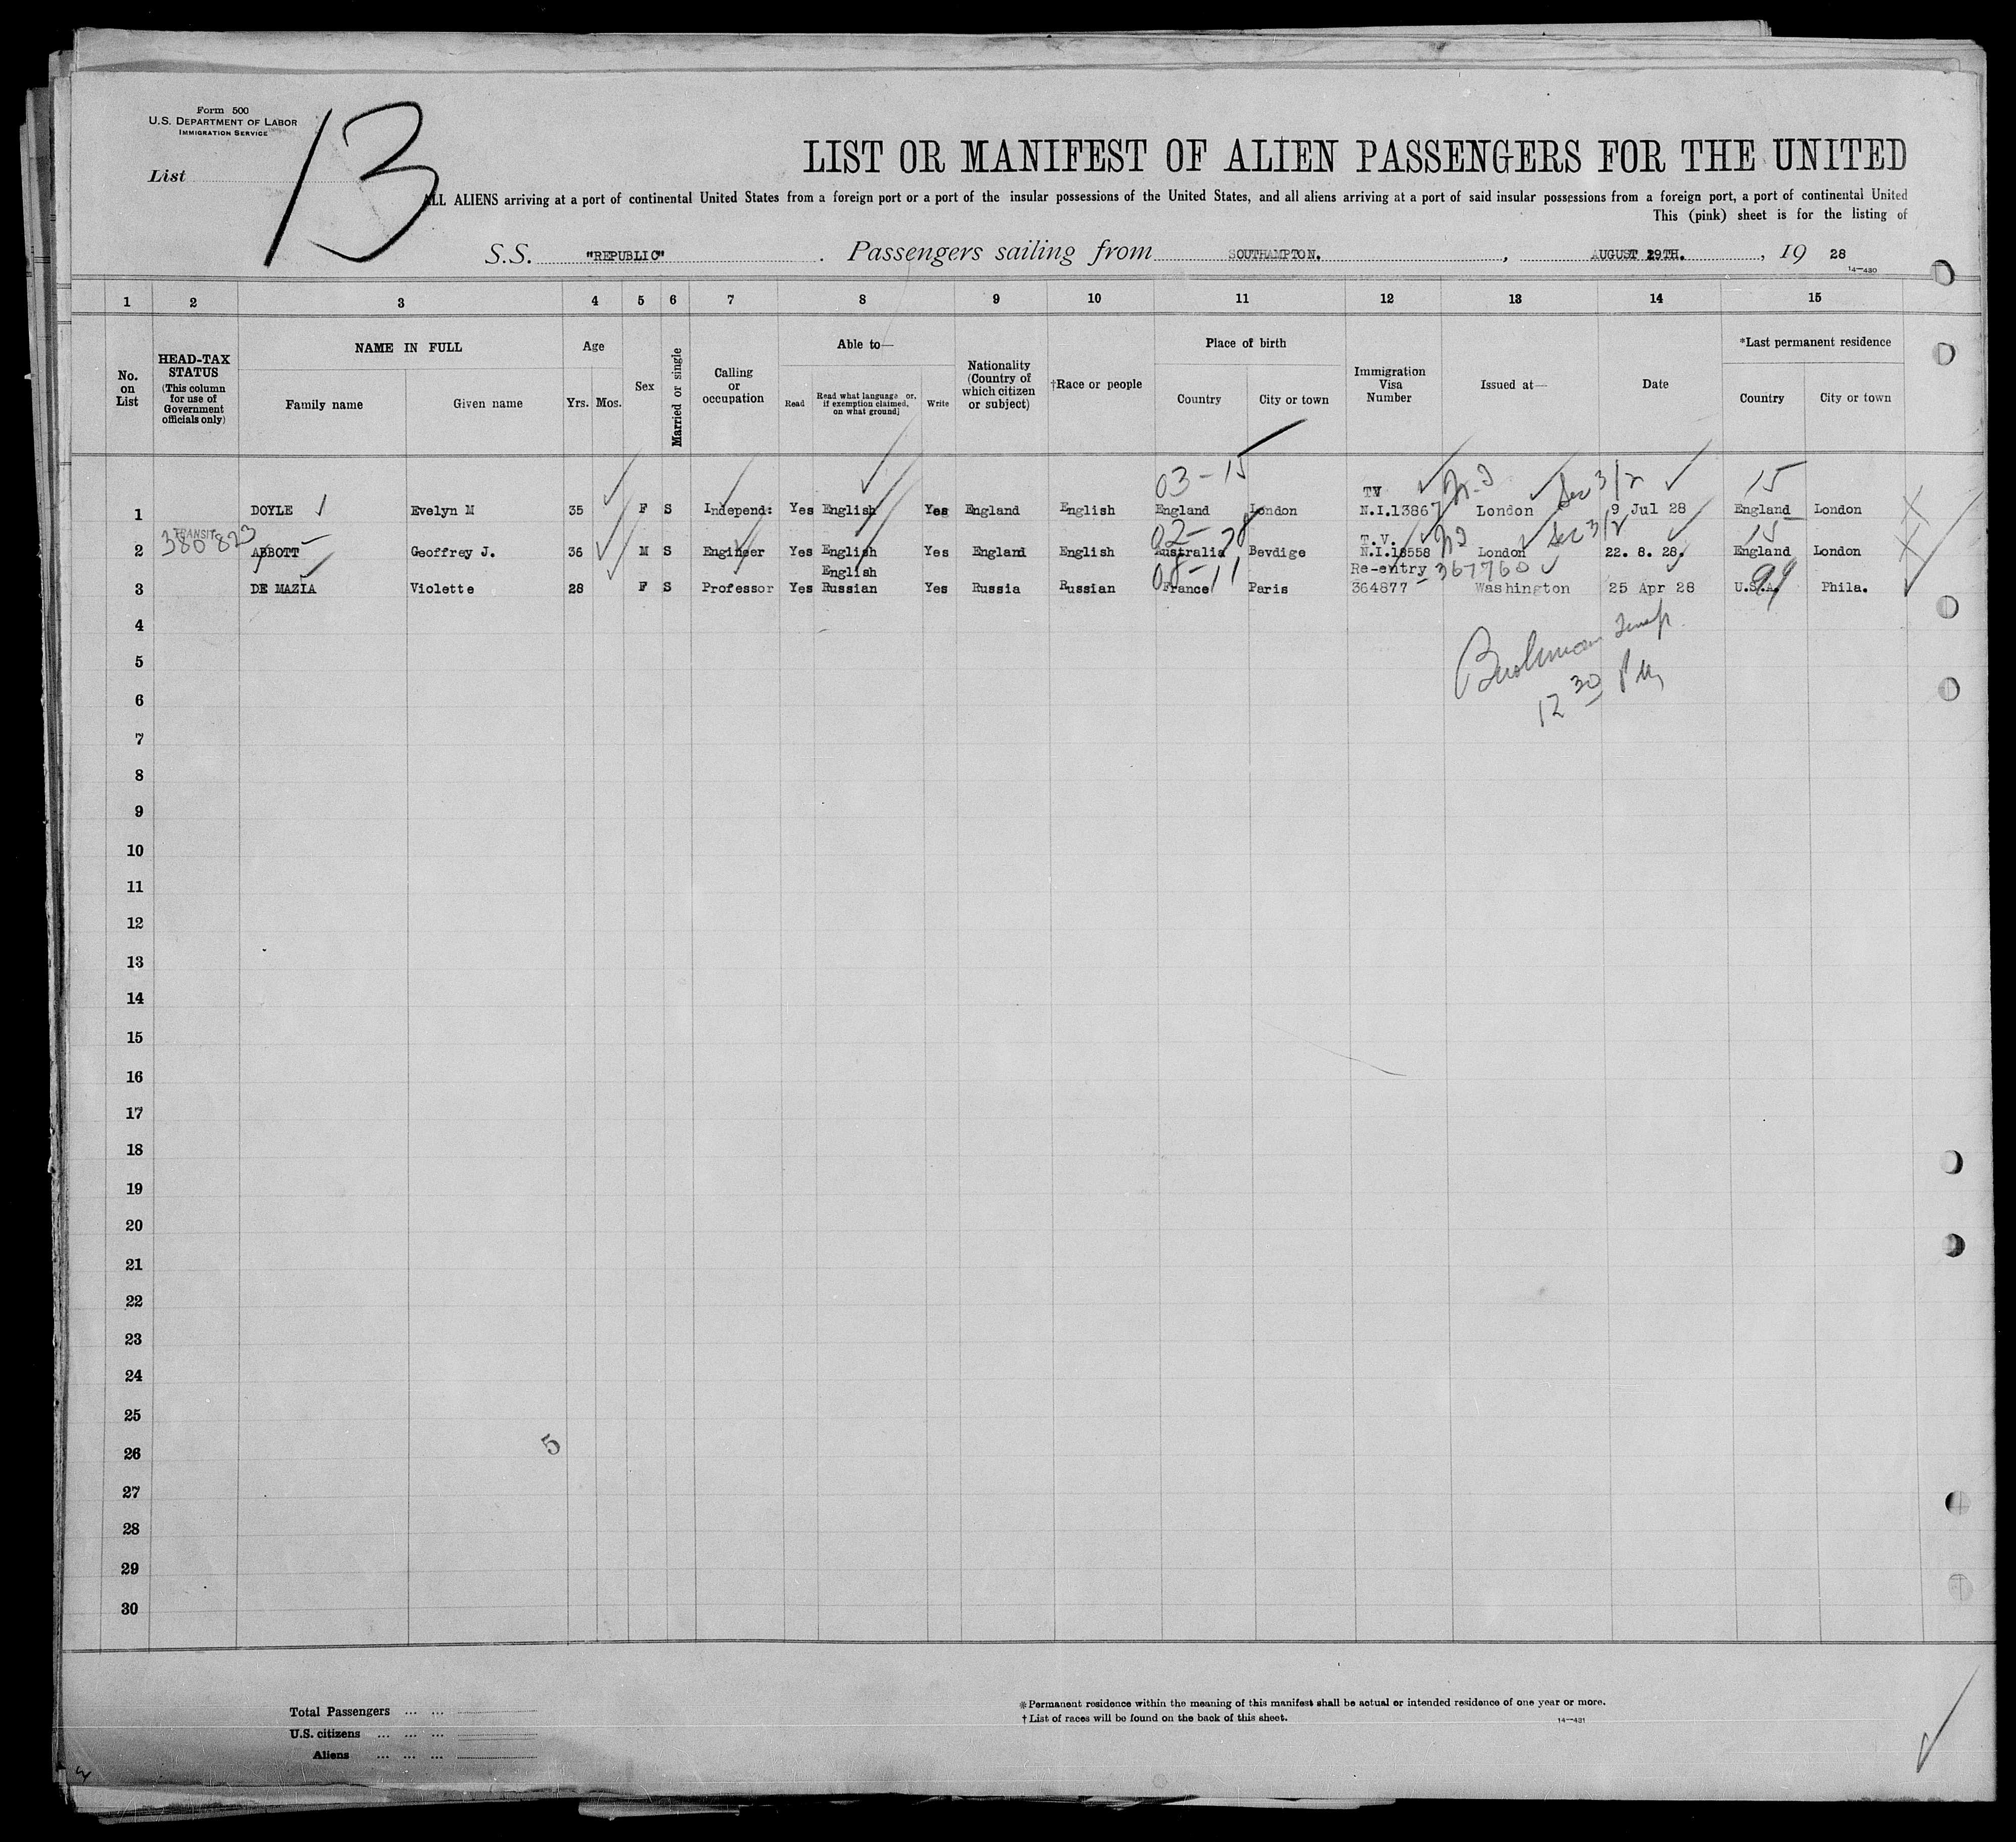 Form 500
U.S. DEPARTMENT OF LABOR
IMMIGRATION SERVICE
List
13
LIST OR MANIFEST OF ALIEN PASSENGERS FOR THE UNITED
ALL ALIENS arriving at a port of continental United States from a foreign port or a port of the insular possessions of the United States, and all aliens arriving at a port of said insular possessions from a foreign port, a port of continental United
This (pink) sheet is for the listing of
S.S. "REPUBLIC". Passengers sailing from SOUTHAMPTON., AUGUST 29TH., 19 28
14—430
1 2 3 4 5 6 7 8 9 10 11 12 13 14 15
No. on List
HEAD-TAX STATUS (This column for use of Government officials only)
NAME IN FULL
Family name Given name
Age
Yrs. Mos.
Sex
Married or single
Calling or occupation
Able to—
Read Read what language or, if exemption claimed, on what ground] Write
Nationality (Country of which citizen or subject)
†Race or people
Place of birth
Country City or town
Immigration Visa Number
Issued at—
Date
*Last permanent residence
Country City or town
03-15 Sec 3/2 15
TV
1 DOYLE Evelyn M 35 F S Independ: Yes English Yes England English England London N.I.13867 London 9 Jul 28 England London
TRANSIT 380823 02- Sec 3/2 15
T.V.
2 ABBOTT Geoffrey J. 36 M S Engineer Yes English Yes England English Australia Bevdige N.I.18558 London 22. 8. 28. England London
English 08-11 Re-entry 367760 99
3 DE MAZIA Violette 28 F S Professor Yes Russian Yes Russia Russian France Paris 364877 Washington 25 Apr 28 U.S.A. Phila.
12 30 PM
4
5
6
7
8
9
10
11
12
13
14
15
16
17
18
19
20
21
22
23
24
25
5
26
27
28
29
30
Total Passengers
U.S. citizens
Aliens
*Permanent residence within the meaning of this manifest shall be actual or intended residence of one year or more.
†List of races will be found on the back of this sheet.
14—431